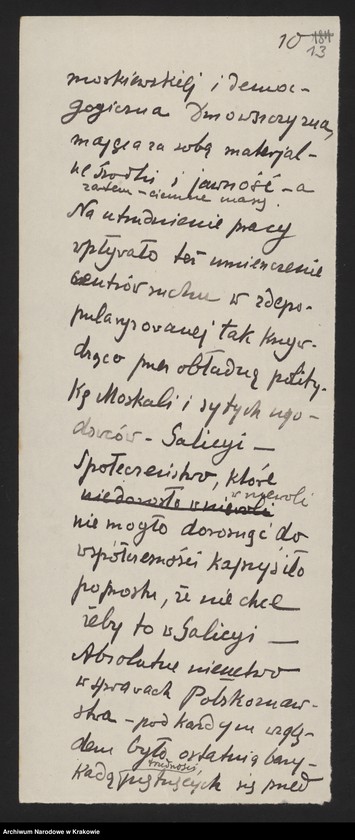 10 184
13
moskiewskiej i demo-
gogiczna Dmowszczyzna,
mająca za sobą materjal-
ne środki i jawność - a
zarazem - ciemne masy.
Na utrudnienie pracy
wpływało też umieszczenie
centrów ruchu w zdepo-
pularyzowanej tak krzyw-
dząco przez obłudną polity-
kę Moskali i sytych ugo-
dowców - Galicyi —
Społeczeństwo, które
w niewoli
niedorosło w niewoli
nie mogło dorosnąć do
współczesności kaprysiło
poprostu, że nie chce
żeby to w Galicyi —
Absolutne nieuctwo
w sprawach Polskoznaw-
stwa - pod każdym wzglę-
dem było ostatnią bary-
trudności
kadą piętrzących się przed
Archiwum Narodowe w Krakowie